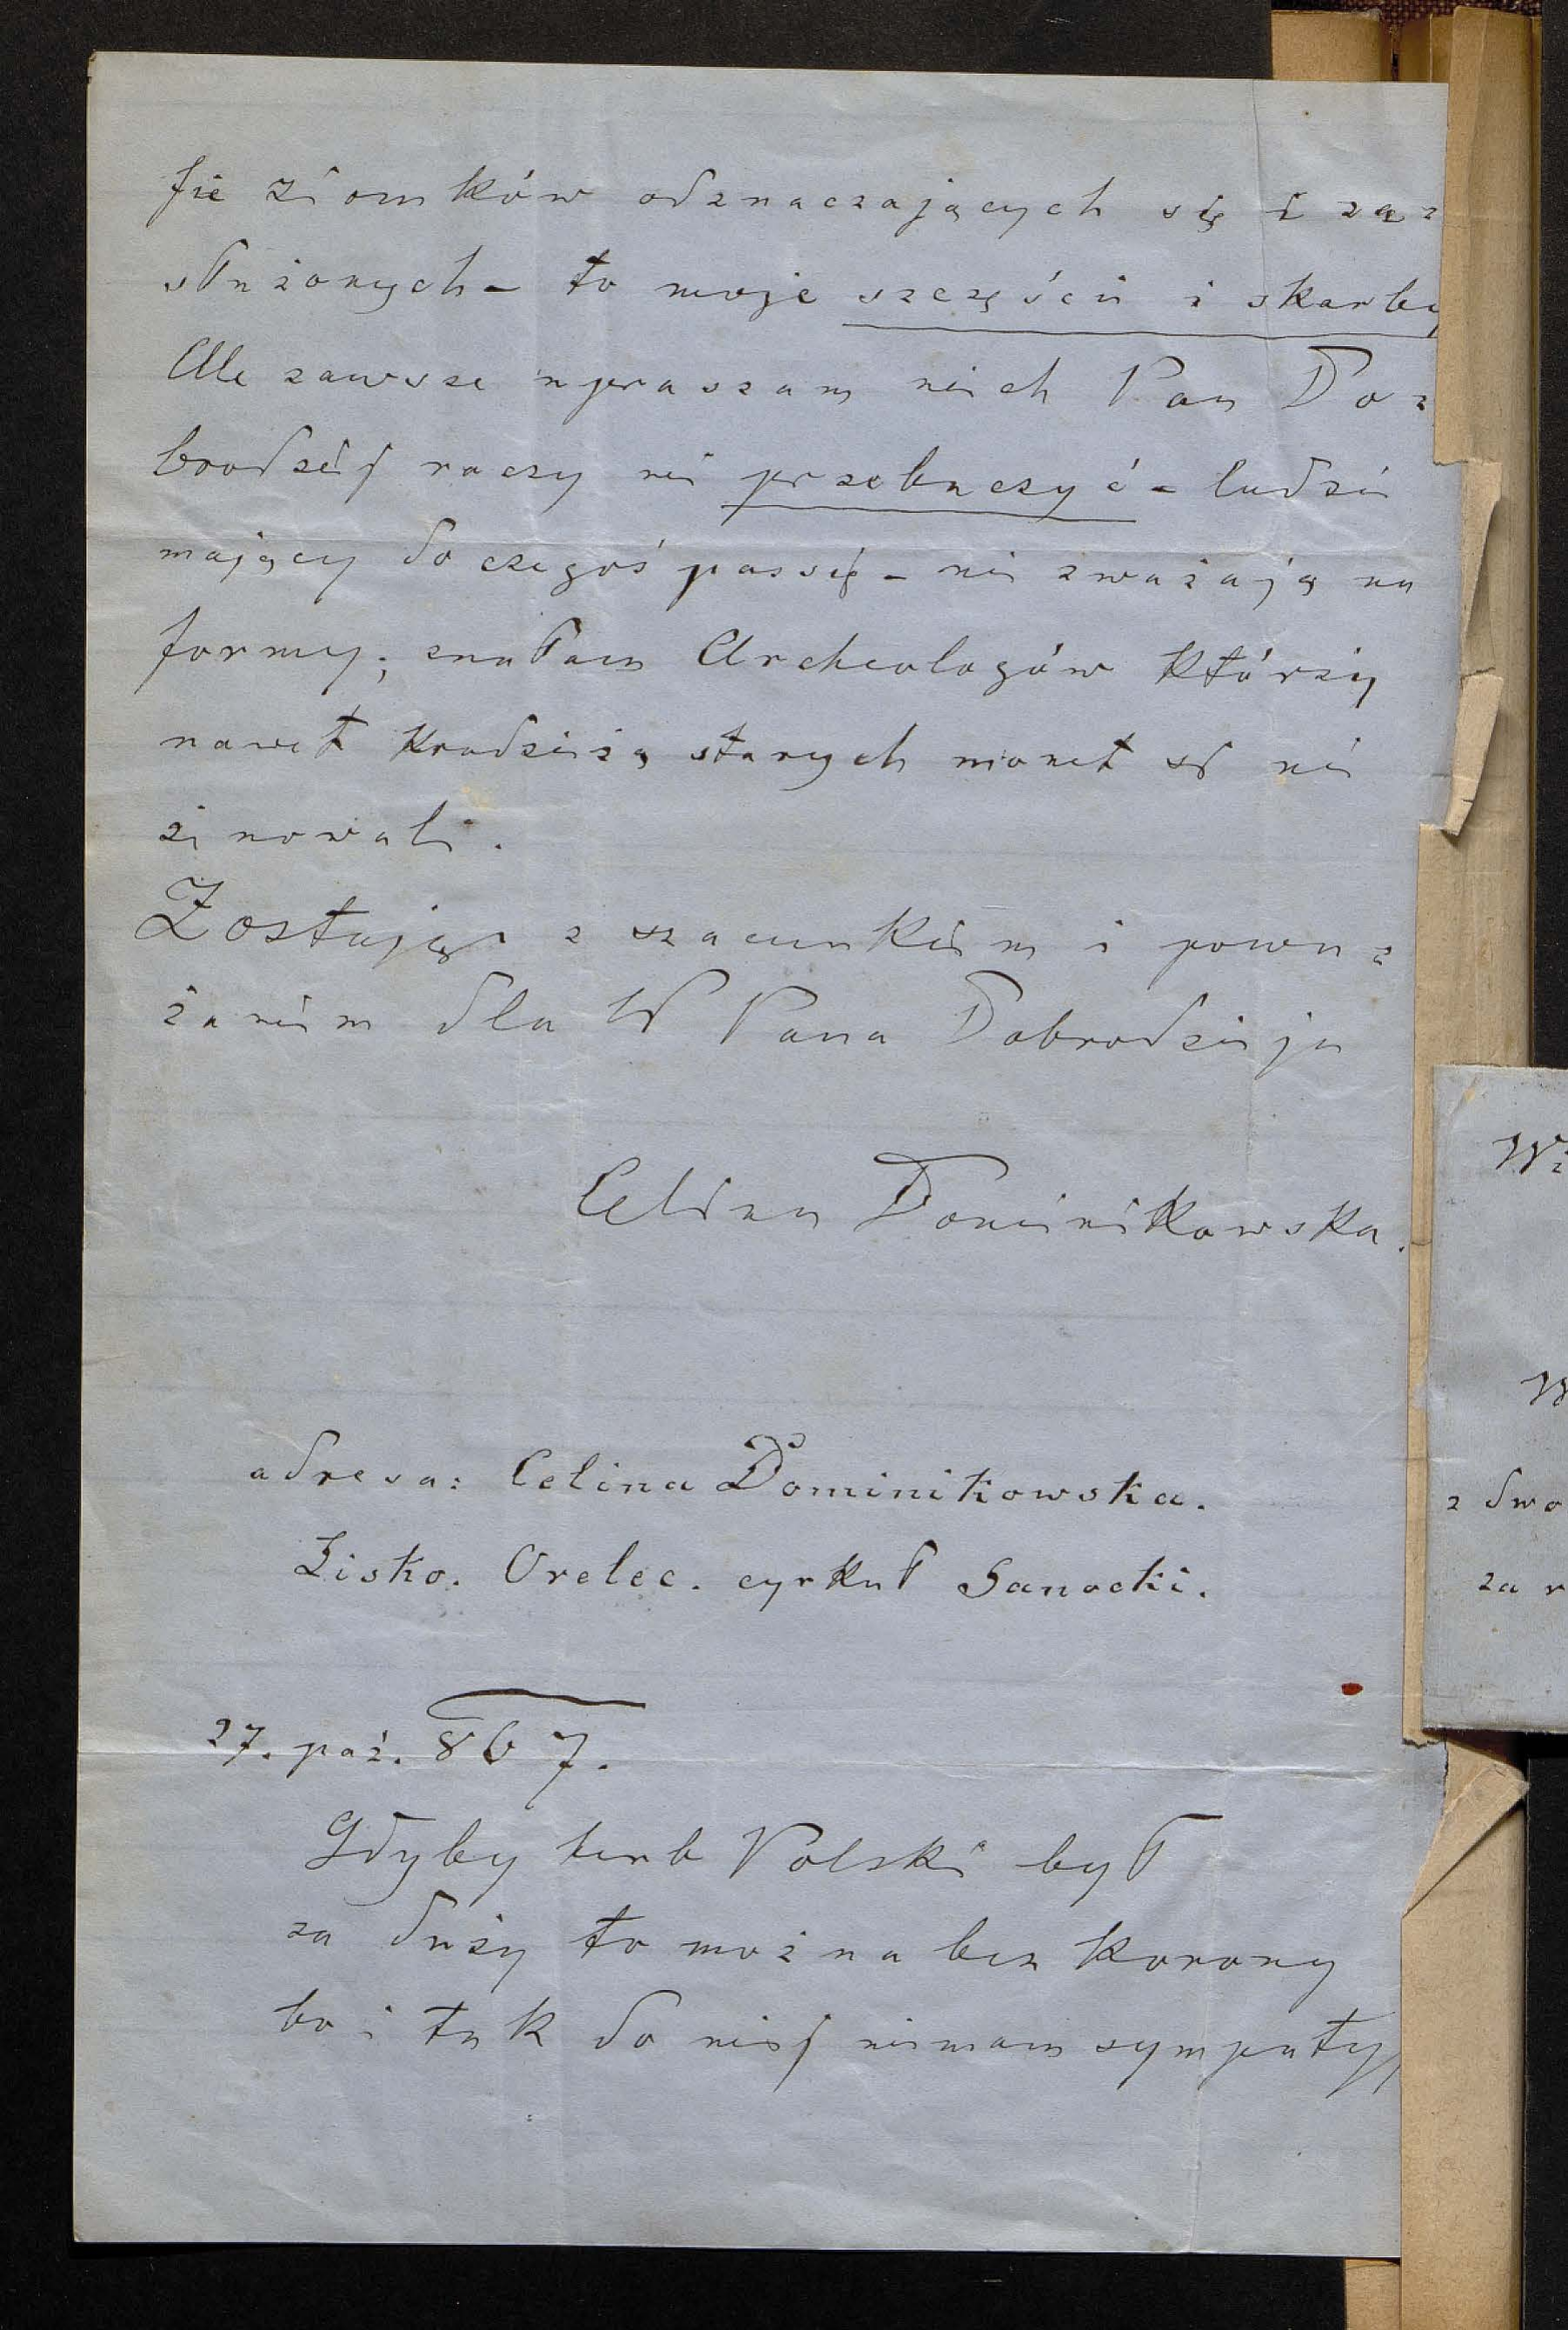 fie ziomków odznaczających się i za=
służonych – to moje szczęście i skarby
Ale zawsze upraszam niech Pan Do=
brodziej raczy mi przebaczyć – ludzie
mający do czegoś passię – nie zważają na
formy; znałam Archeologów którzy
nawet kradzieżą starych monet się nie
żenowali.
Zostaję z szacunkiem i powa=
żaniem dla W Pana Dobrodzieja
Celina Dominikowska.
adresa: Celina Dominikowska.
Lisko. Orelec. cyrkuł Sanocki.
27. paź. 867.
Gdyby herb Polski był
za duży to można bez korony
bo i tak do niej niemam sympatyi
z dwo
za r